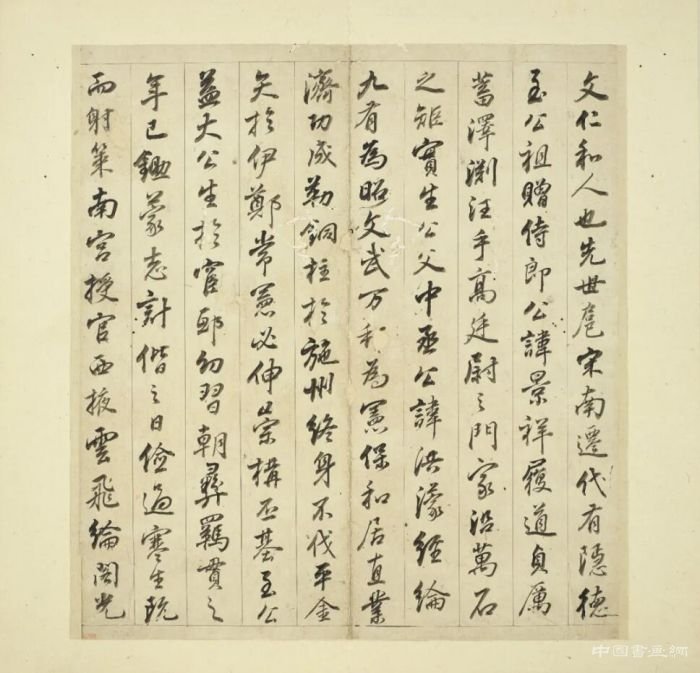 文仁和人也先世扈宋南遷代有隱德
至公祖贈侍郎公諱景祥履道貞厲
蓄澤渊汪手高廷尉之門家沿萬石
之矩實生公父中丞公諱洪濛經綸
九有為昭文武万利為憲保和居直業
濟功成勒銅柱於施州終身不伐平金
矢於伊鄭常憲必伸崇構丕基至公
益大公生於宦邸幼習朝彝羈貫之
年已鋤蒙志計偕之日儉過寒生既
而射策南宮授官西掖雲飛綸閣光
中国書画網